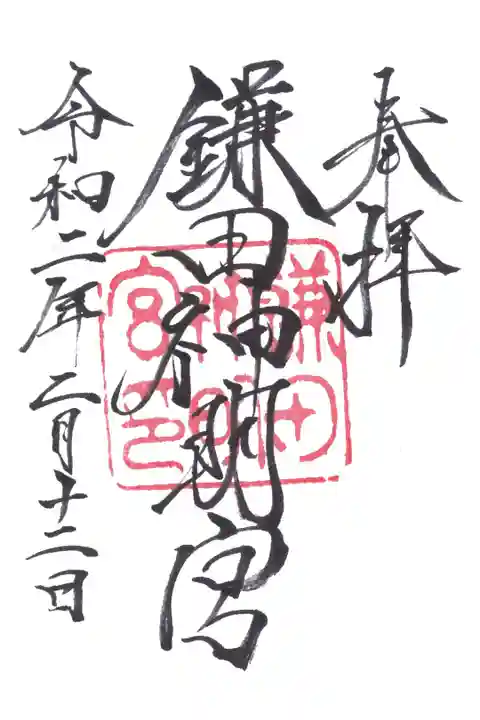 奉拝
鎌田神明宮
鎌田神明宮印
令和二年二月十二日